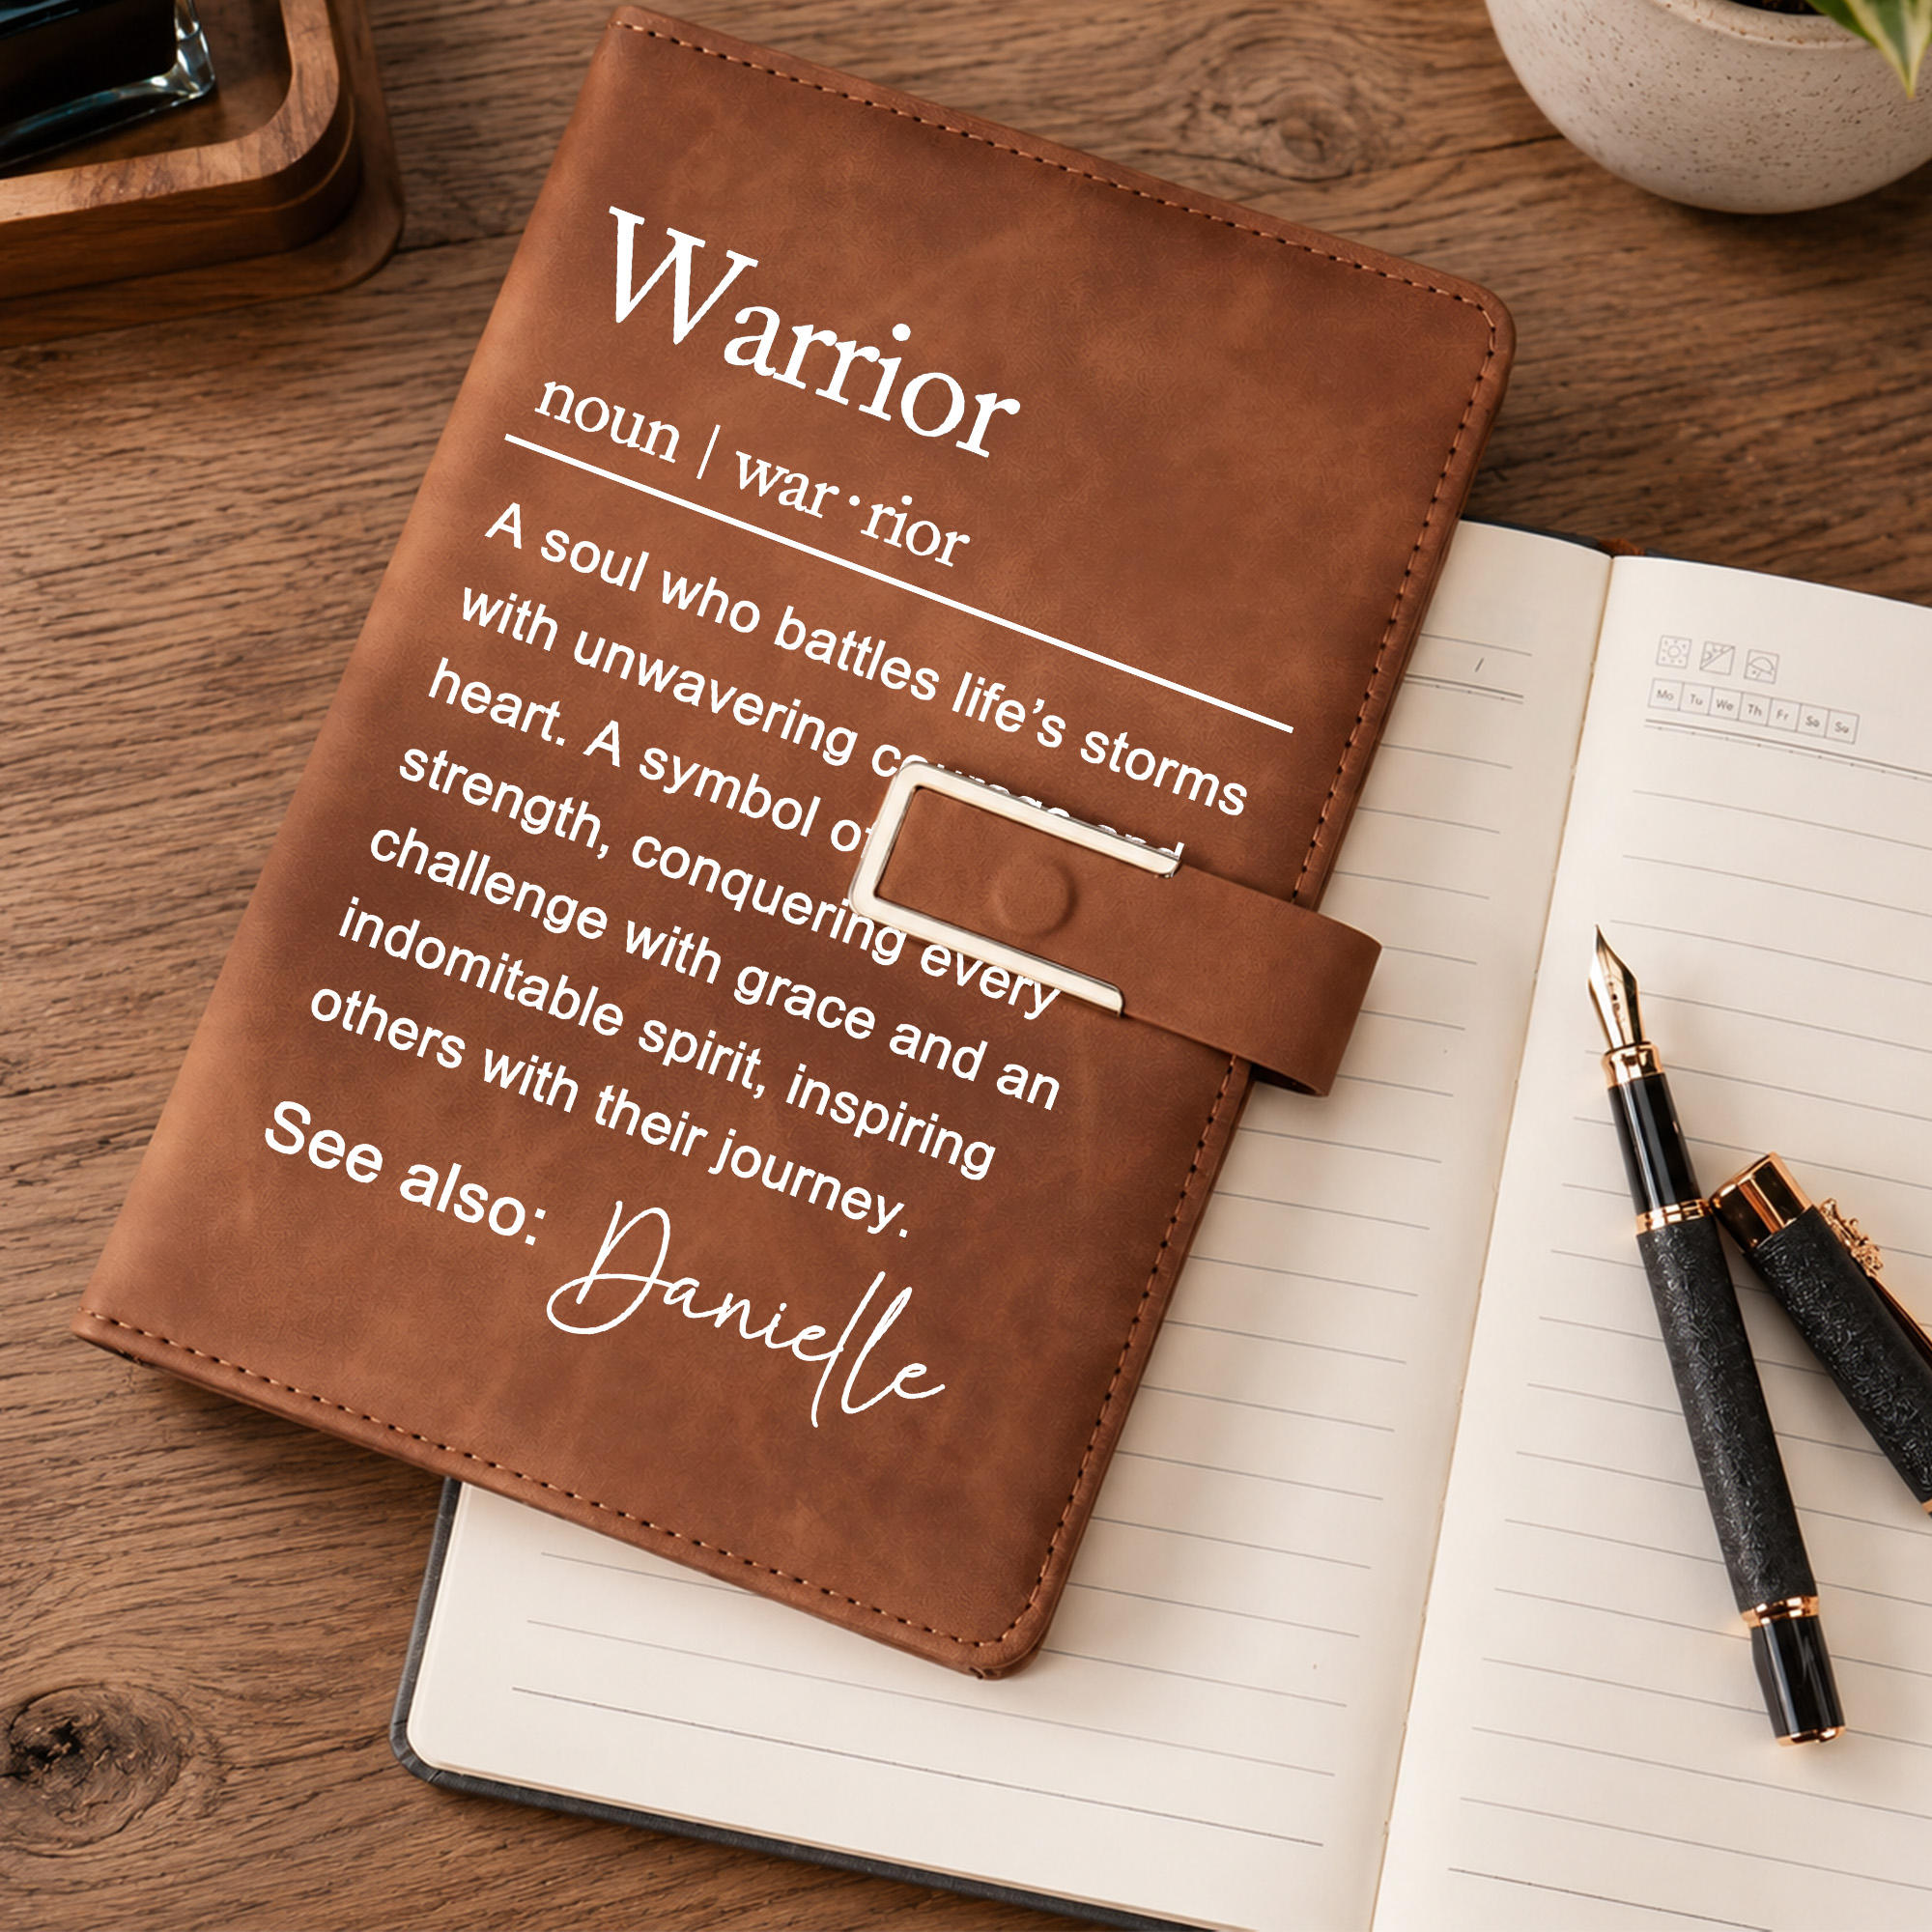 Warrior
noun | war·rior
A soul who battles life's storms
with unwavering courage and
heart. A symbol of
strength, conquering every
challenge with grace and an
indomitable spirit, inspiring
others with their journey.
See also: Danielle
/
Mo Tu We Th Fr Sa Su